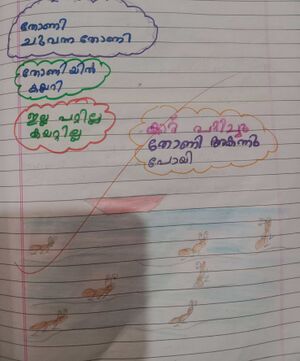 തോണി
ചുവന്ന തോണി
തോണിയിൽ
കയറി
ഇല്ല പറ്റില്ല
കയറ്റില്ല
തോണി അകന്നു
പോയി